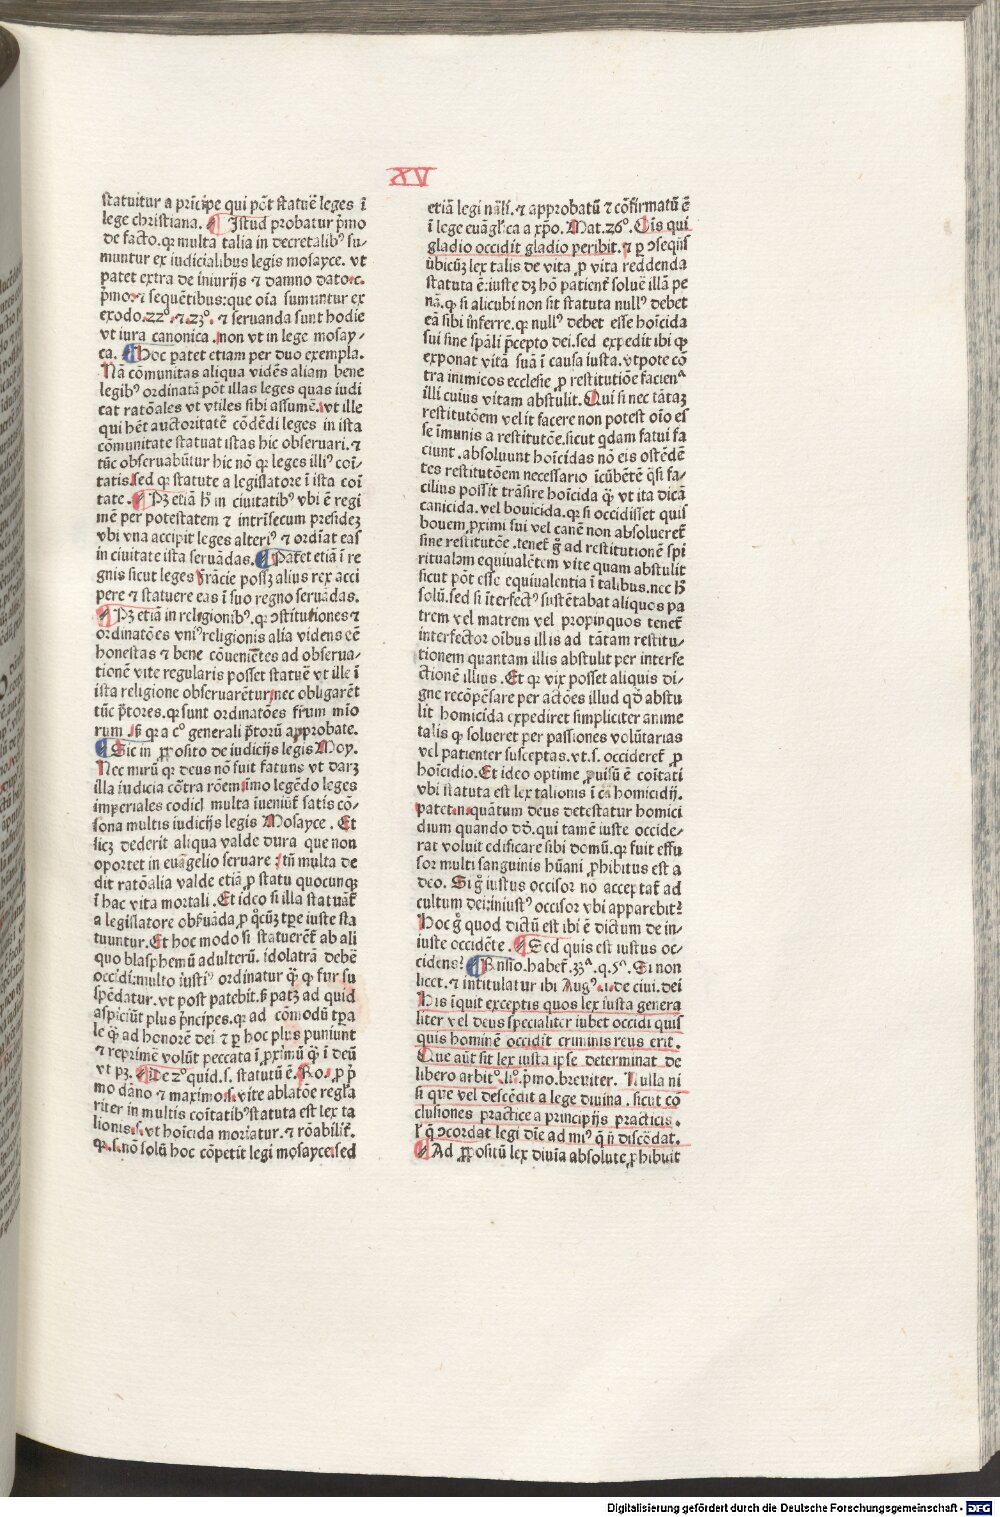 XV
statuitur a prīcipe qui pōt statuē leges ī
lege christiana. Istud probatur p̄mo
de facto. qꝛ multa talia in decretalibꝰ su-
muntur ex iudicialibus legis mosayce. vt
patet extra de iniurijs ⁊ damno dato. c.
p̄mo. ⁊ sequētibus: que oīa sumuntur ex
exodo. 22º. ⁊. 23º. ⁊ seruanda sunt hodie
vt iura canonica. non vt in lege mosay-
ca. Hoc patet etiam per duo exempla.
Nā cōmunitas aliqua vidēs aliam bene
legibꝰ ordinatā pōt illas leges quas iudi
cat ratōales vt vtiles sibi assumē. vt ille
qui hēt auctoritatē cōdēdi leges in ista
cōmunitate statuat istas hic obseruari. ⁊
tūc obseruabūtur hic nō qꝛ leges illiꝰ coī-
tatis. sed qꝛ statute a legislatore ī ista coī
tate. Pꝫ etiā h̄ in ciuitatibꝰ vbi ē regi
mē per potestatem ⁊ intrīsecum presidēꝫ
vbi vna accipit leges alteriꝰ ⁊ ordīat eas
in ciuitate ista seruādas. Patet etiā ī re
gnis sicut leges frācie possꝫ alius rex acci
pere ⁊ statuere eas ī suo regno seruādas.
Pꝫ etiā in religionibꝰ. qꝛ ↄstitutiones ⁊
ordinatōes vniꝰ religionis alia videns eē
honestas ⁊ bene cōueniētes ad obserua-
tionē vite regularis posset statuē vt ille ī
ista religione obseruarētur. nec obligarēt
tūc p̄tores. qꝛ sunt ordinatōes frum mīo
rum. sꝫ qꝛ a cº generali p̄torū approbate.
Sic in ꝓposito de iudicijs legis Moy.
Nec mirū qꝛ deus nō fuit fatuus vt darꝫ
illa iudicia cōtra rōem. imo legēdo leges
imperiales codicī multa īueniūt̄ satis cō-
sona multis iudicijs legis Mosayce. Et
licꝫ dederit aliqua valde dura que non
oportet in euāgelio seruare: tn̄ multa de
dit ratōalia valde etiā ꝓ statu quocunqꝫ
ī hac vita mortali. Et ideo si illa statuāt̄
a legislatore obꝰuāda ꝓ qͦcūqꝫ tpe iuste sta
tuuntur. Et hoc modo si statuerēt̄ ab ali
quo blasphemū adulterū. idolatrā debē
occīdi: multo iustiꝰ ordinatur qͣ̄ qͦ fur su
spēdatur. vt post patebit. sꝫ patꝫ ad quid
aspiciūt plus p̄ncipes. qꝛ ad cōmodū tpꝛa
le qͣ̄ ad honorē dei ⁊ ꝑ hoc plus puniunt
⁊ reprimē volūt peccata ī ꝓximū qͣ̄ ī deū
vt pꝫ. De 2º quid. s. statutū ē. Ro. ꝓ p̄
mo dāno ⁊ maximo. s. vite ablatōe regla
riter in multis coītatibꝰ statuta est lex ta
lionis. s. vt hoīcida moriatur. ⁊ rōabilit̄.
qꝛ. s. nō solū hoc cōpetit legi mosayce. sed
etiā legi nāli. ⁊ approbatū ⁊ cōfirmatū ē
ī lege euāglīca a xp̄o. Mat. 26º. Oīs qui
gladio occidit gladio peribit. ⁊ ꝑ ↄseqn̄s
ubicūqꝫ lex talis de vita ꝓ vita reddenda
statuta ē: iuste dꝫ hō patient̄ soluē illā pe
nā. qꝛ si alicubi non sit statuta nullꝰ debet
eā sibi inferre. qꝛ nullꝰ debet esse hoīcida
sui sine spāli p̄cepto dei. sed expedit ibi qͦ
exponat vitā suā ī causa iusta. vtpote cō
tra inimicos ecclesie ꝓ restitutiōe facienͣ
illi cuius vitam abstulit. Qui si nec tātaꝫ
restitutōem velit facere non potest oīo es
se īmunis a restitutōe. sicut qͥdam fatui fa
ciunt. absoluunt hoīcidas nō eis ostēdē
tes restitutōem necessario īcūbētē qͣsi fa-
cilius possit trāsire hoīcida qͣ̄ vt ita dicā
canicida. vel bouicida. qꝛ si occidisset quis
bouem ꝓximi sui vel canē non absolueret̄
sine restitutōe. tenet̄ g̊ ad restitutionē spi
ritualam equiualētem vite quam abstulit
sicut pōt esse equiualentia ī talibus. nec h̄
solū. sed si īterfectꝰ sustētabat aliquos pa
trem vel matrem vel propinquos tenet̄
interfector oībus illis ad tātam restitu-
tionem quantam illis abstulit per interfe
ctionē illius. Et qꝛ vix posset aliquis di-
gne recōpēsare per actōes illud qͦd abstu
lit homicida expediret simpliciter anime
talis qͦ solueret per passiones volūtarias
vel patienter susceptas. vt. s. occideret̄ ꝓ
hoīcidio. Et ideo optime ꝓuisū ē coītati
vbi statuta est lex talionis ī ea homicidij.
patet. n. quātum deus detestatur homici
dium quando dd̄. qui tamē iuste occide-
rat voluit edificare sibi domū. qꝛ fuit effu
sor multi sanguinis hūani ꝓhibitus est a
deo. Si g̊ iustus occisor nō acceptat̄ ad
cultum dei: iniustꝰ occisor vbi apparebit?
Hoc g̊ quod dictū est ibi ē dictum de in-
iuste occidēte. Sed quis est iustus oc-
cidens? Rn̄sio. habet̄. 33ͣ. q. 5ͣ. Si non
licet. ⁊ intitulatur ibi Augꝰ. i. de ciui. dei
His īquit exceptis quos lex iusta genera
liter vel deus specialiter iubet occidi quis
quis hominē occidit criminis reus erit.
Que aūt sit lex iusta ipse determinat de
libero arbitº. liº. p̄mo. breuiter. Nulla ni
si que vel descēdit a lege diuina. sicut cō
clusiones practice a principijs practicis.
ł q̄ ↄcordat legi dīe ad miꝰ q̄ n̄ discōdat.
Ad ꝓpositū lex diuīa absolute ꝓhibuit
Digitalisierung gefördert durch die Deutsche Forschungsgemeinschaft - DFG